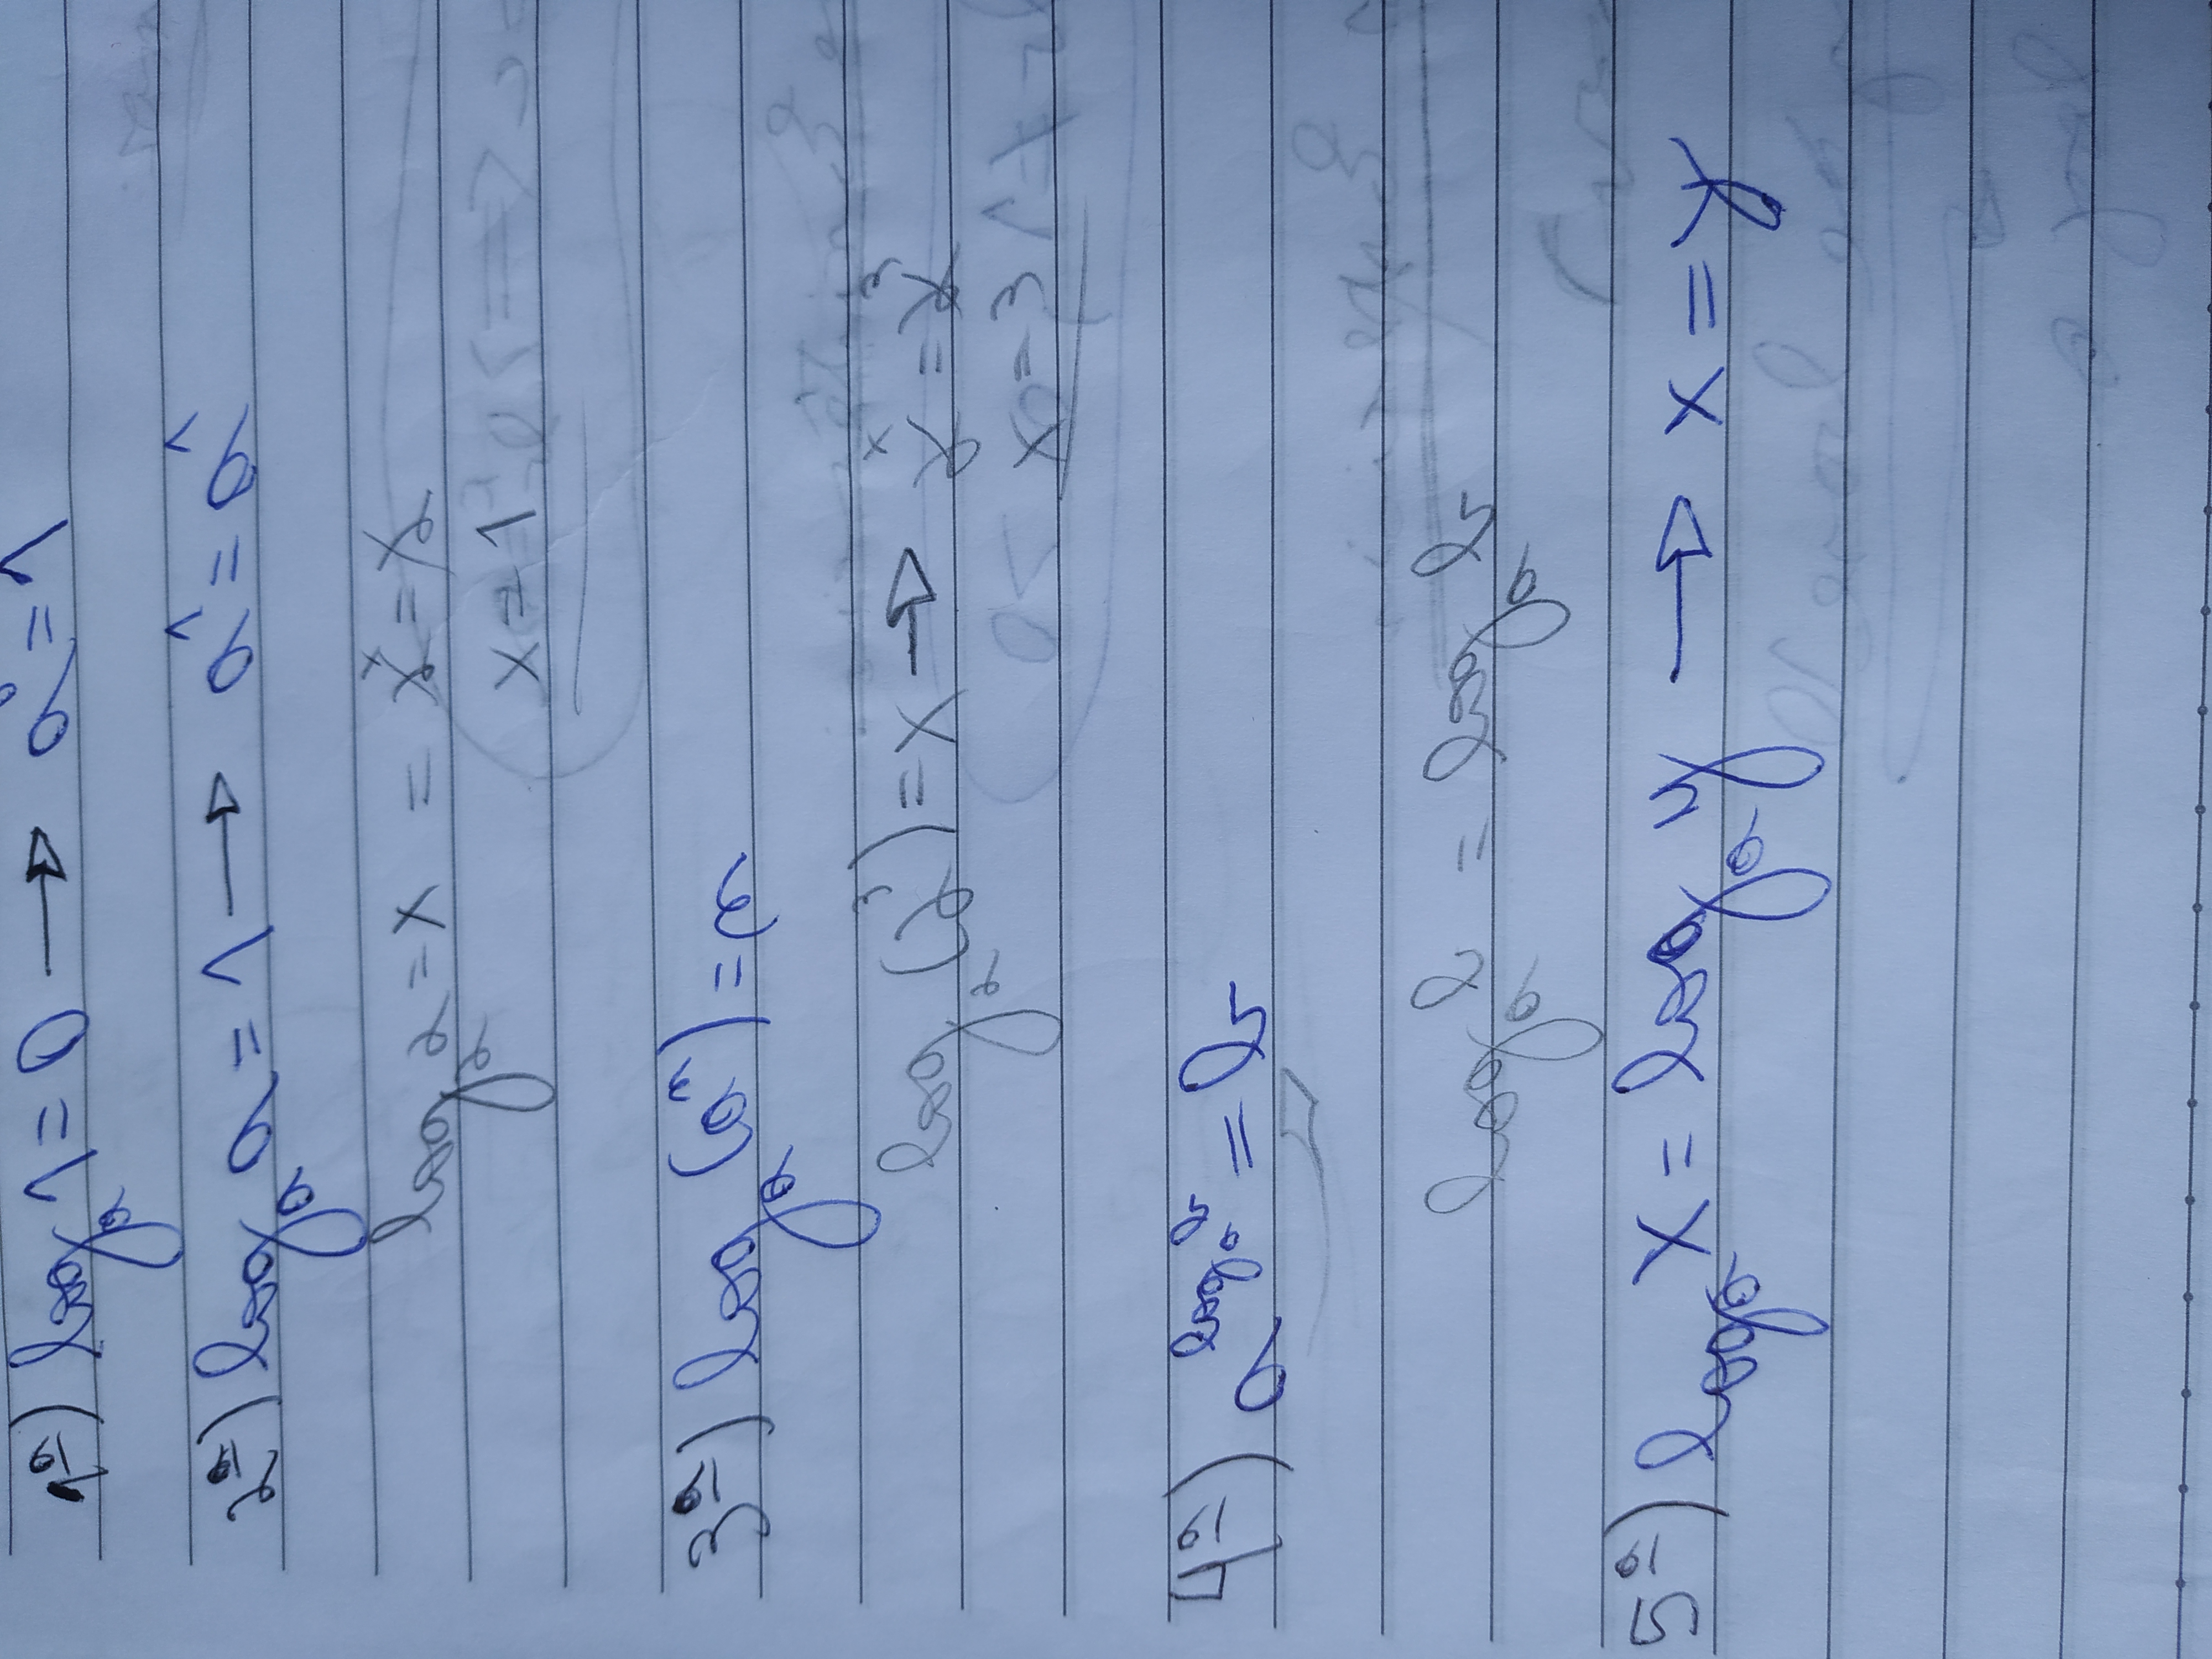 1ª) logₐ 1 = 0 → a⁰ = 1
2ª) logₐ a = 1 → a¹ = a¹
log₂ 2 = x = 2ˣ = 2
x = 1
3ª) logₐ (aⁿ) = n
log₂ (2³) = x → 2ˣ = 2³
x = 3
4ª) a^(logₐ b) = b
logₐ b = logₐ b
5ª) logₐ x = logₐ y → x = y